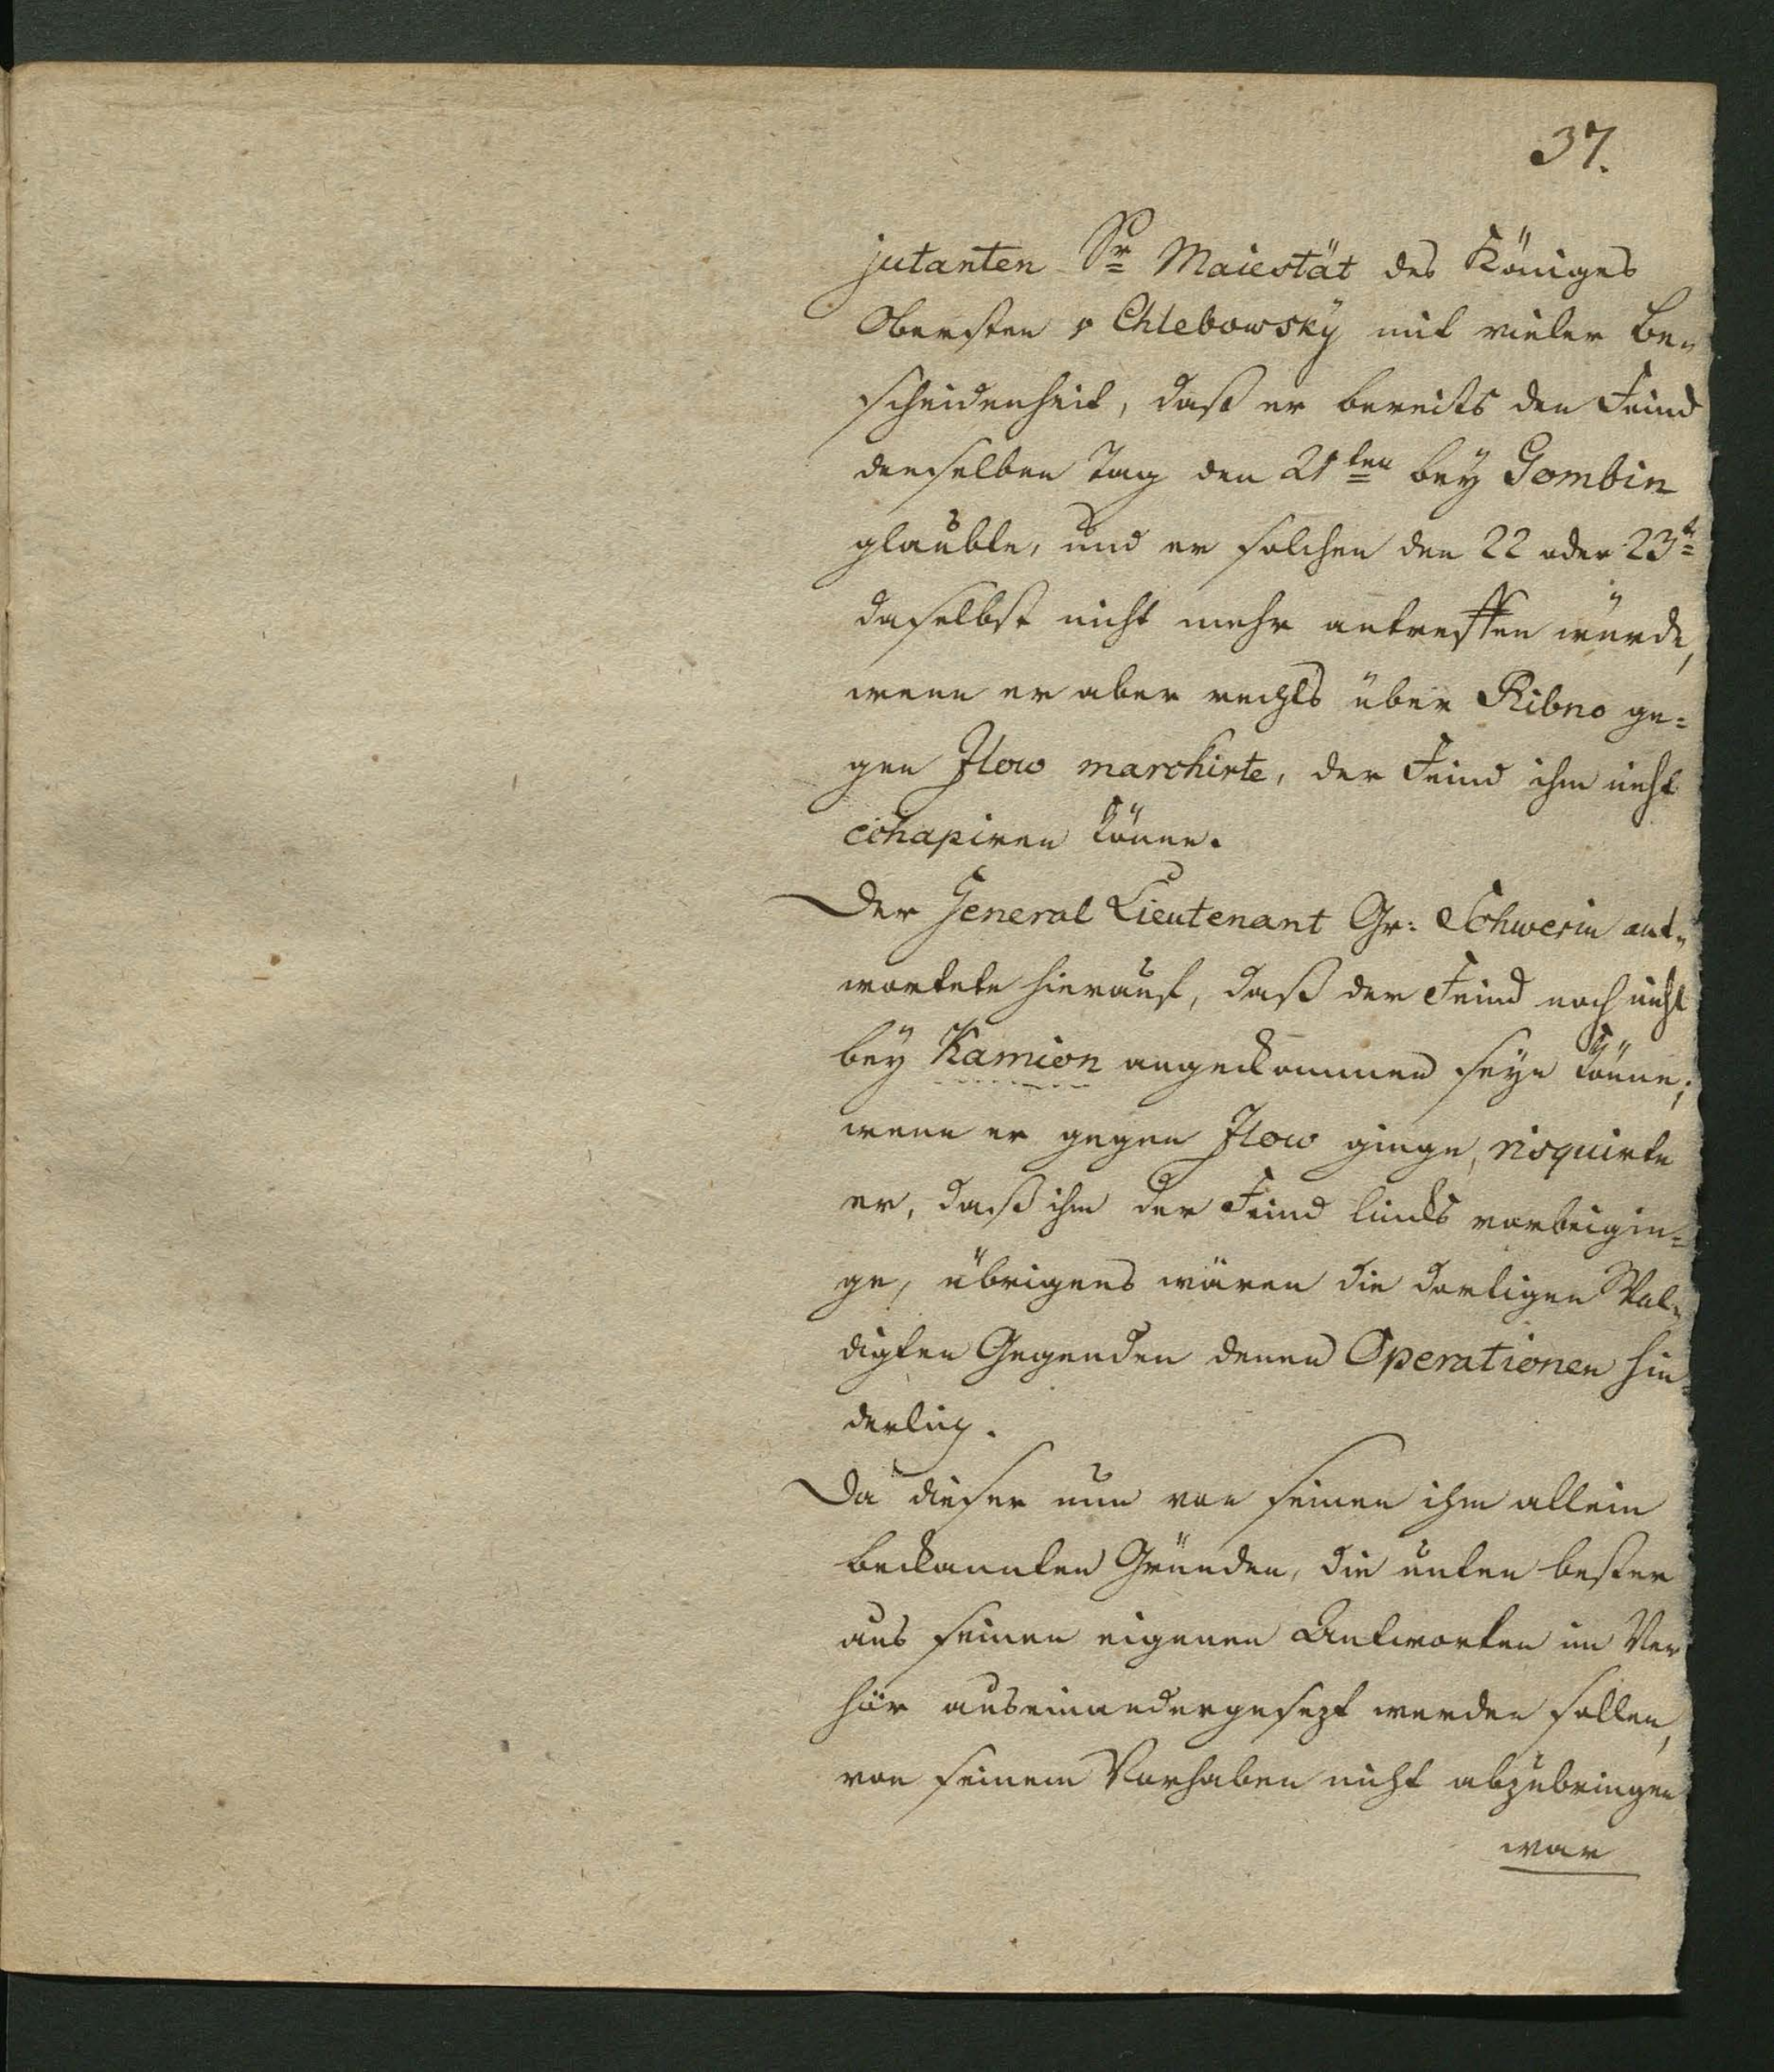 37.
jutanten Sr Maiestät des Königes
Obersten v Chlebowsky mit vieler Be„
scheidenheit, daß er bereits den Feind
denselben Tag den 21ten bey Gombin
glaubte, und er solchen den 22 oder 23t
daselbst nicht mehr antreffen würde,
wenn er aber rechts über Ribno ge=
gen Jlow marchirte, der Feind ihm nicht
echapiren könne.
Der General Lieutenant Gr: Schwerin ant„
wortete hierauf, daß der Feind noch nicht
bey Kamion angekommen seyn könne;
wenn er gegen Jlow ginge, risquirte
er, daß ihm der Feind links vorbeigin=
ge, übrigens wären die dortigen Wal„
digten Gegenden denen Operationen hin=
derlich.
Da dieser nun von seinen ihm allein
bekannten Gründen, die unten besser
aus seinen eigenen Antworten im Ver
hör auseinandergesezt werden sollen,
von seinem Vorhaben nicht abzubringen
war